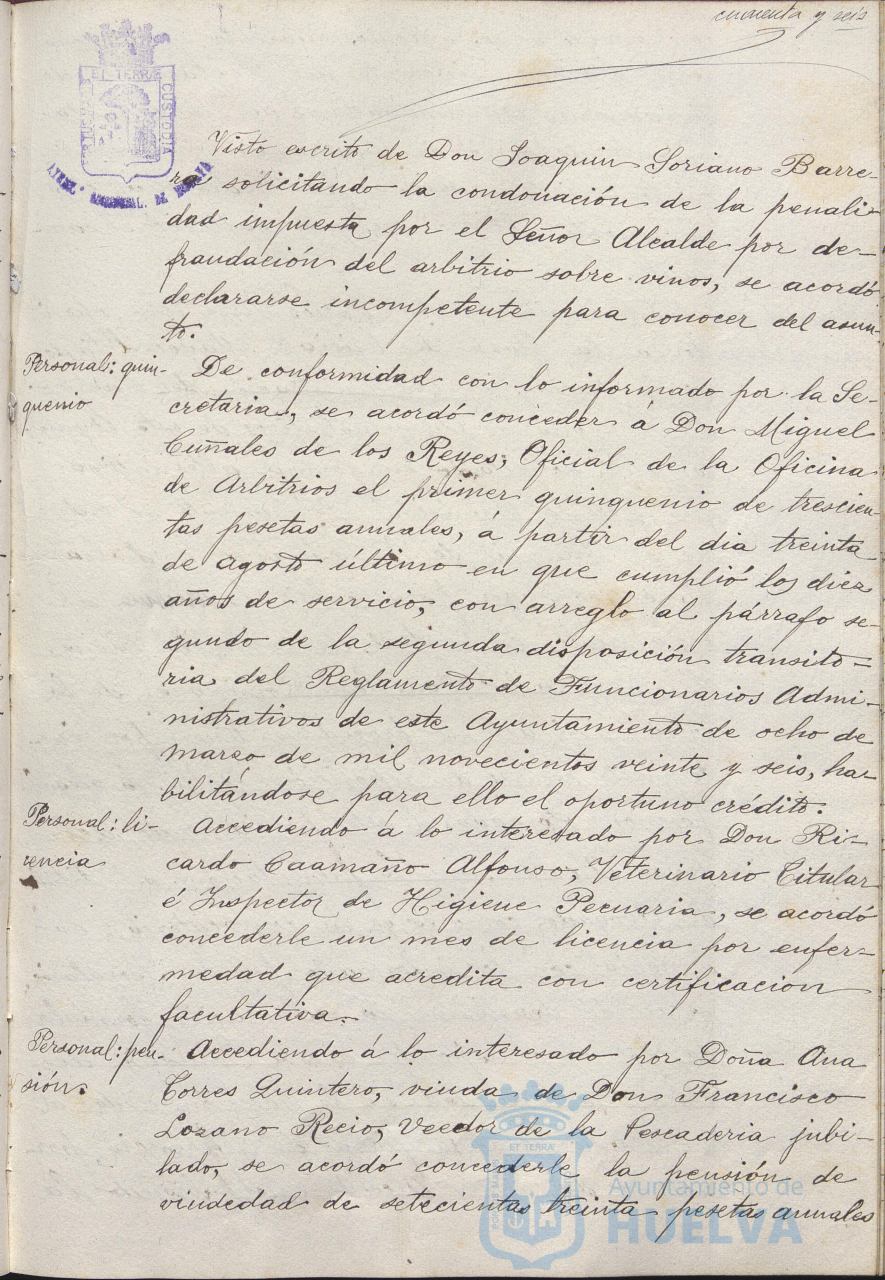 cincuenta y seis
ET TERRÆ
CUSTODIA
Visto escrito de Don Joaquin Soriano Barre-
ra solicitando la condonación de la penali-
dad impuesta por el Señor Alcalde por de-
fraudación del arbitrio sobre vinos, se acordó
declararse incompetente para conocer del asun-
to.
Personal: quin-
quenio
De conformidad con lo informado por la Se-
cretaria, se acordó conceder á Don Miguel
Cuñales de los Reyes, Oficial de la Oficina
de Arbitrios el primer quinquenio de trescien-
tas pesetas anuales, á partir del dia treinta
de agosto último en que cumplió los diez
años de servicio, con arreglo al párrafo se-
gundo de la segunda disposición transito-
ria del Reglamento de Funcionarios Admi-
nistrativos de este Ayuntamiento de ocho de
marzo de mil novecientos veinte y seis, ha-
bilitándose para ello el oportuno crédito.
Personal: li-
cencia
Accediendo á lo interesado por Don Ri-
cardo Caamaño Alfonso, Veterinario Titular
é Inspector de Higiene Pecuaria, se acordó
concederle un mes de licencia por enfer-
medad que acredita con certificacion
facultativa.
Personal: pen-
sión.
Accediendo á lo interesado por Doña Ana
Torres Quintero, viuda de Don Francisco
Lozano Recio, Veedor de la Pescaderia jubi-
lado, se acordó concederle la pensión de
viudedad de setecientas treinta pesetas anuales
ET TERRÆ
Ayuntamiento de
HUELVA